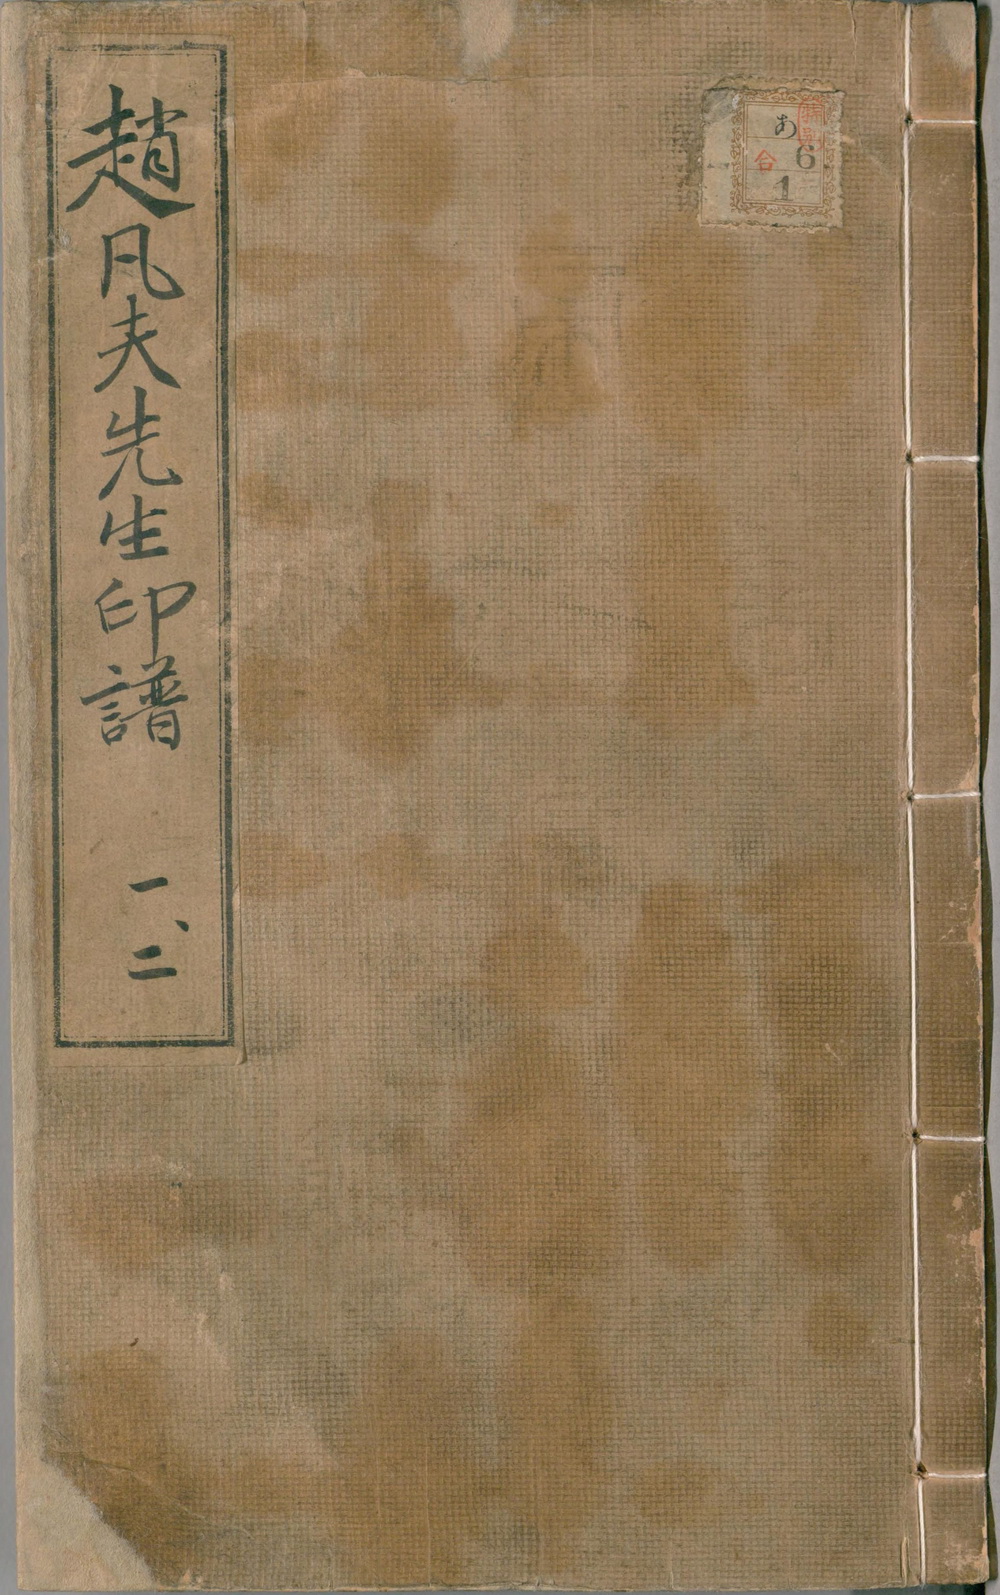 趙凡夫先生印譜 一、二
あ
6
合
1